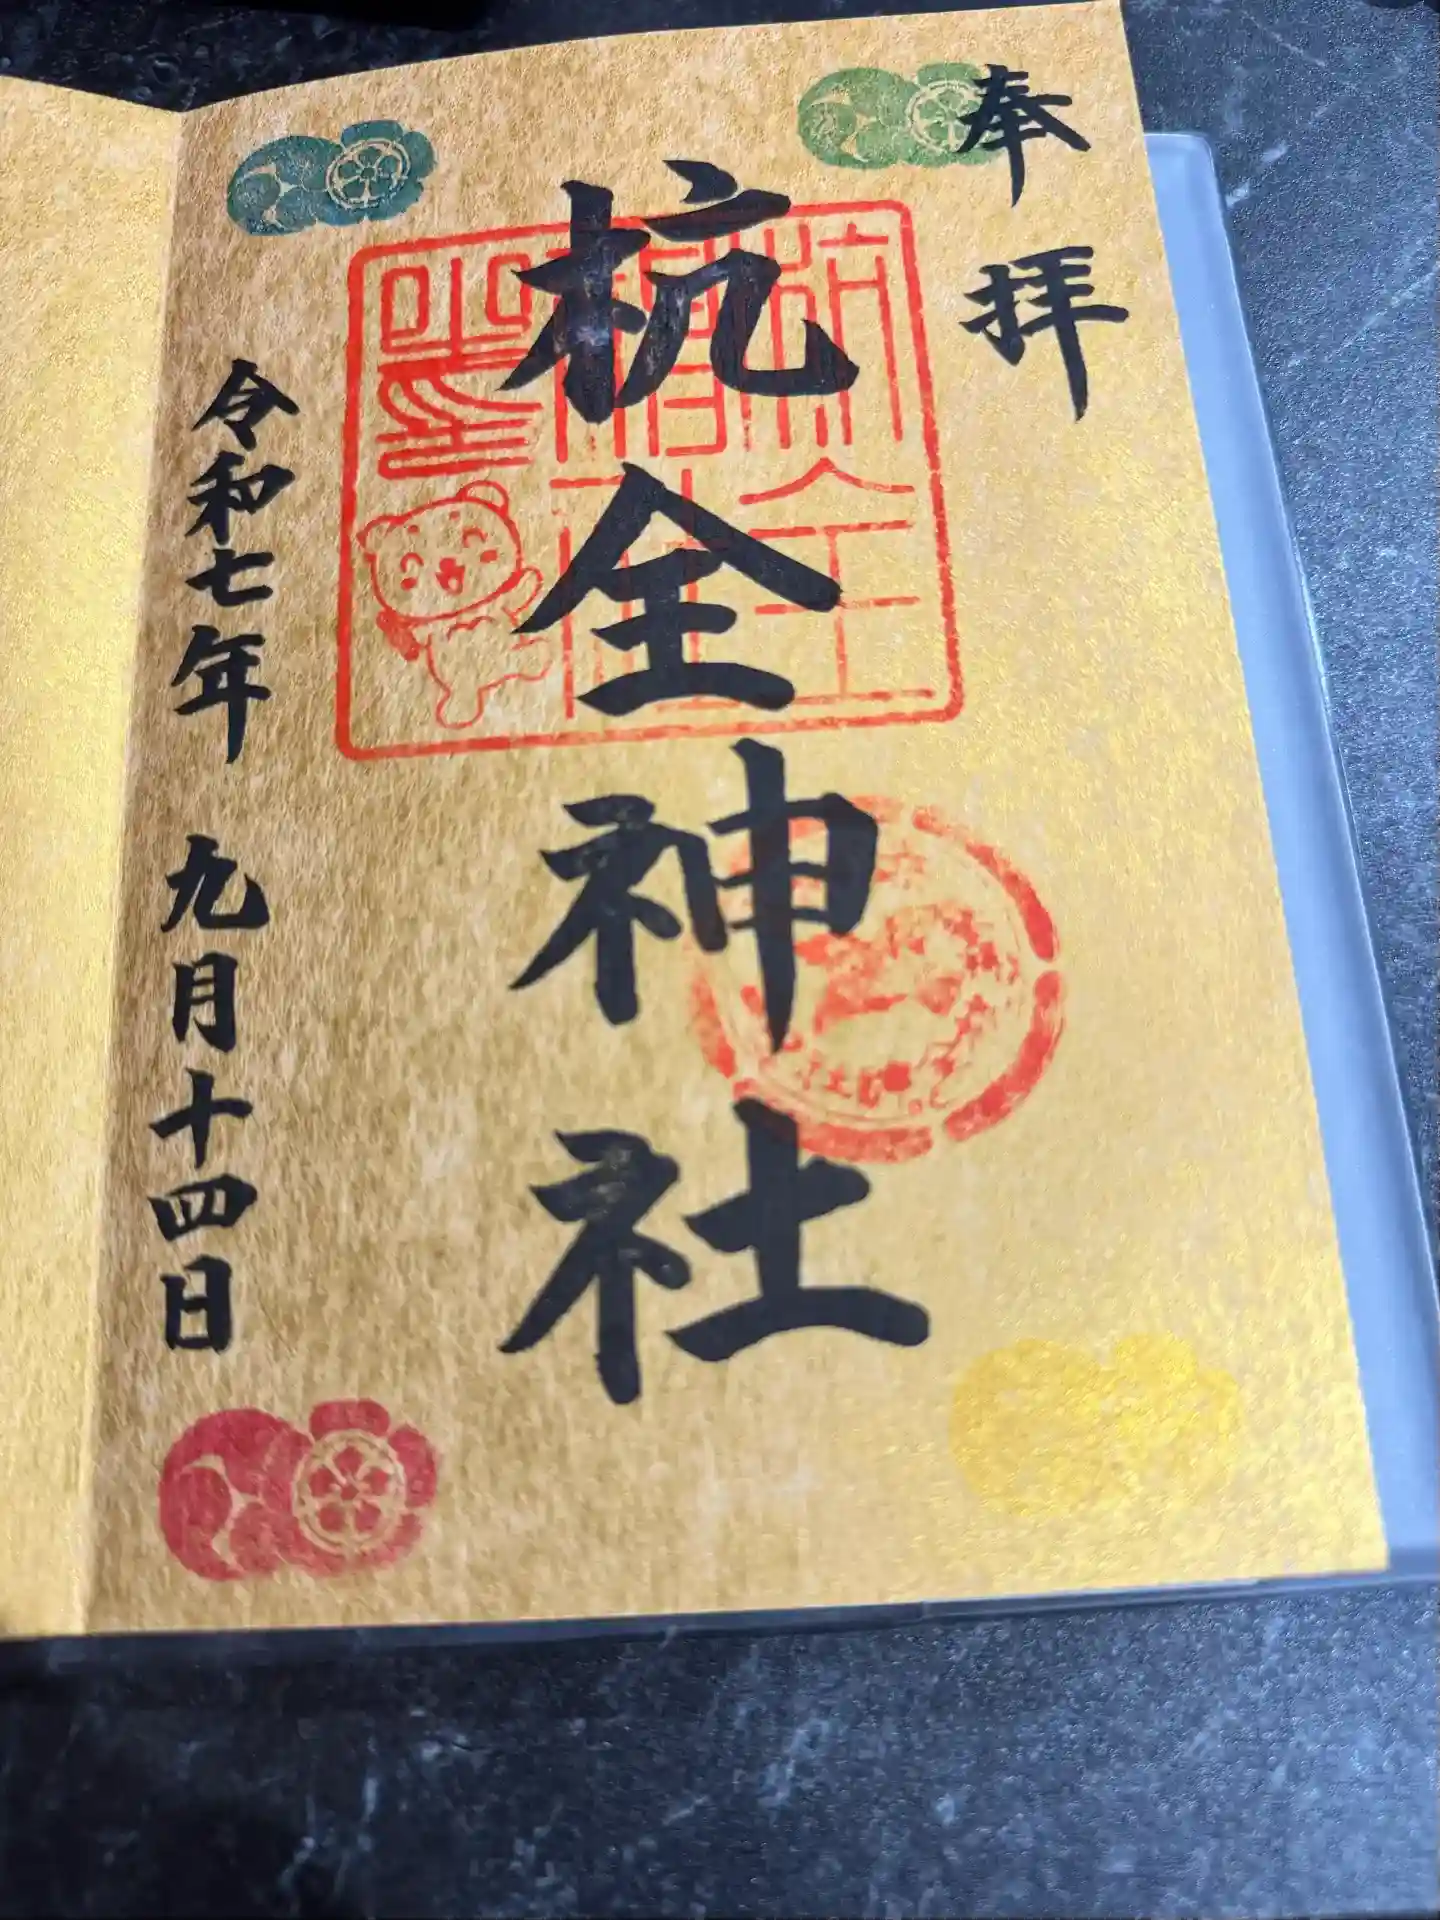 奉拝
杭全神社
令和七年 九月十四日